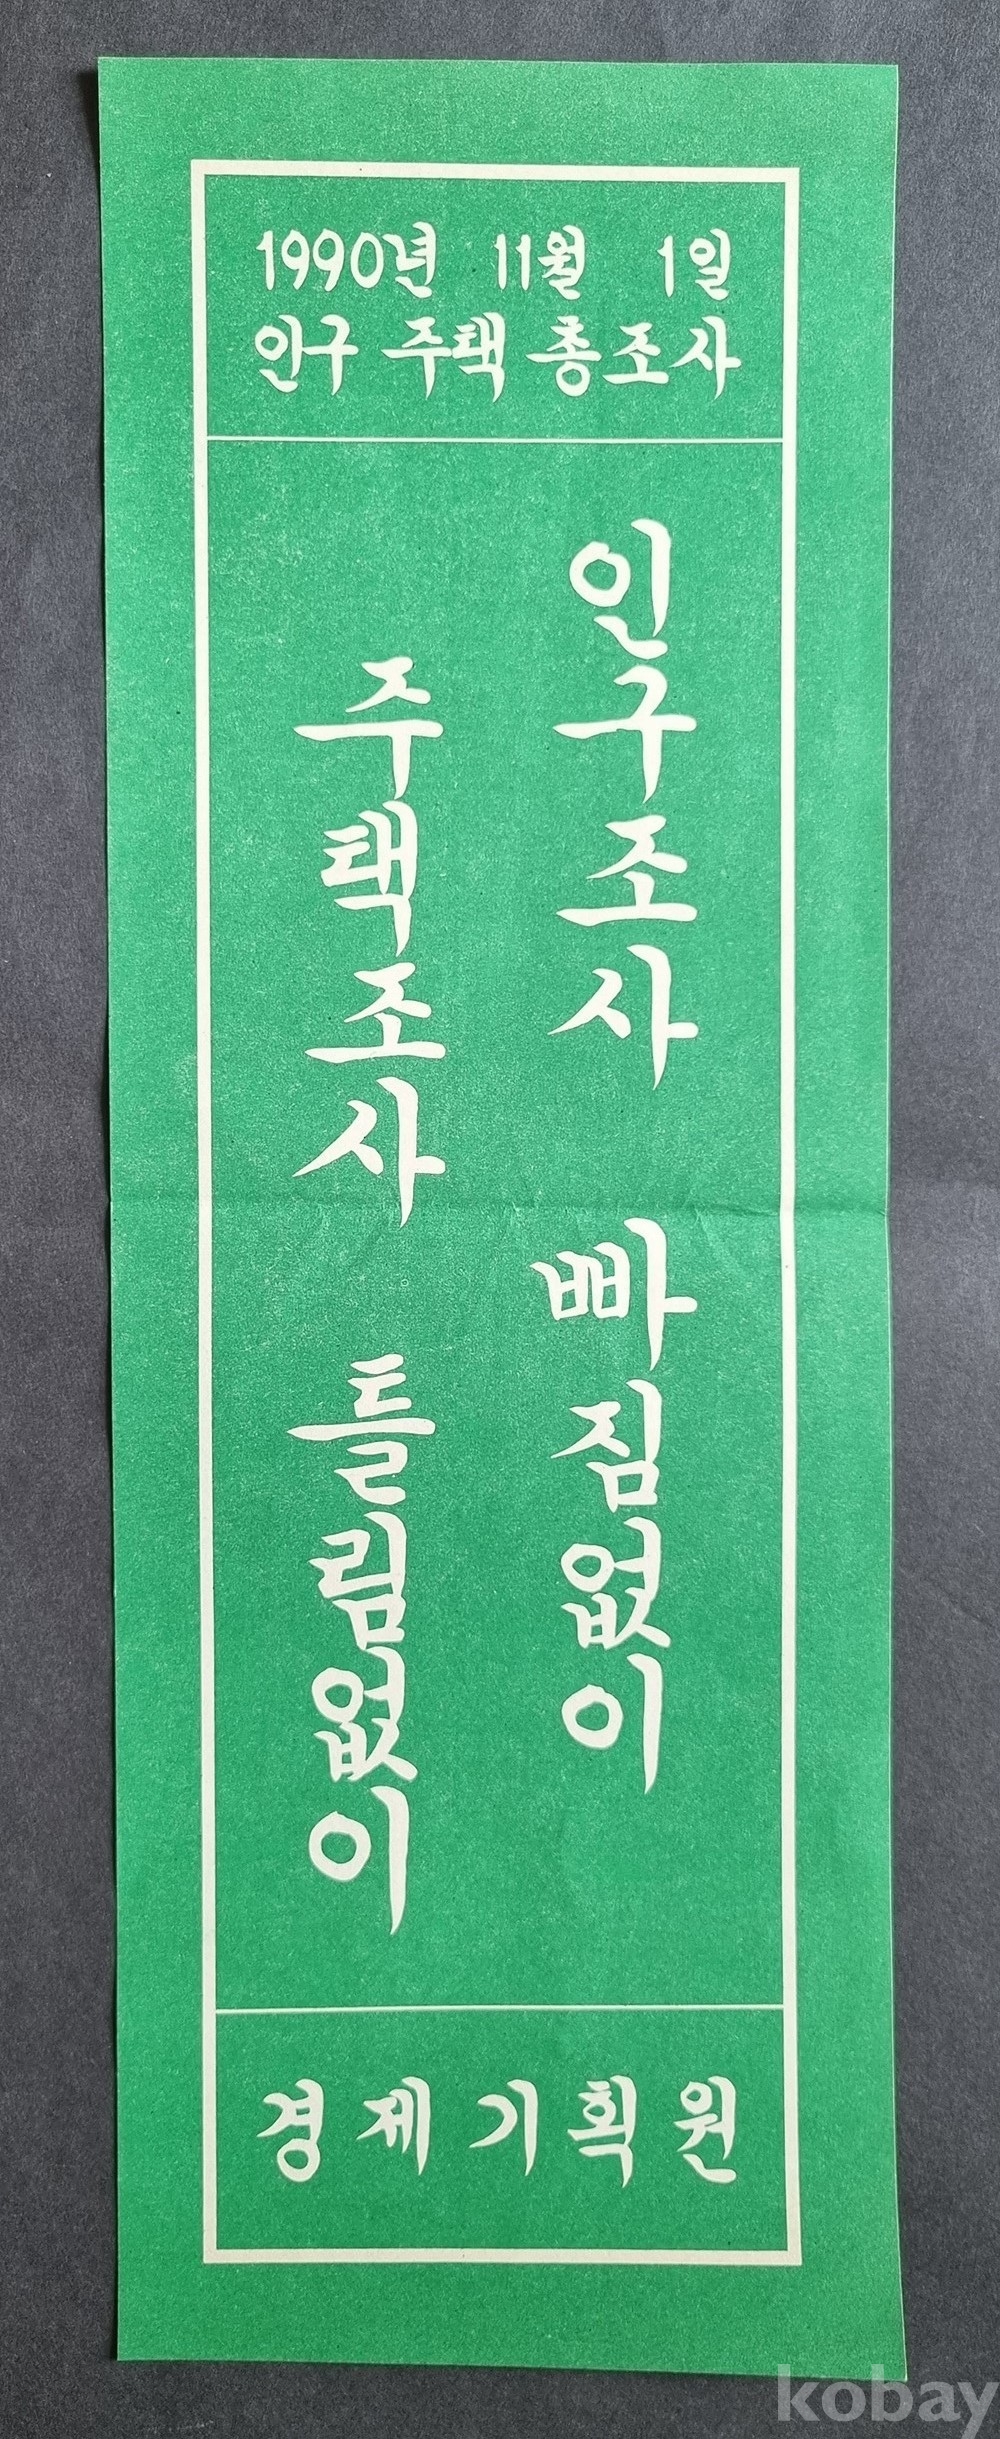 1990년 11월 1일
인구 주택 총조사
인구조사 빠짐없이
주택조사 틀림없이
경제기획원
kobay